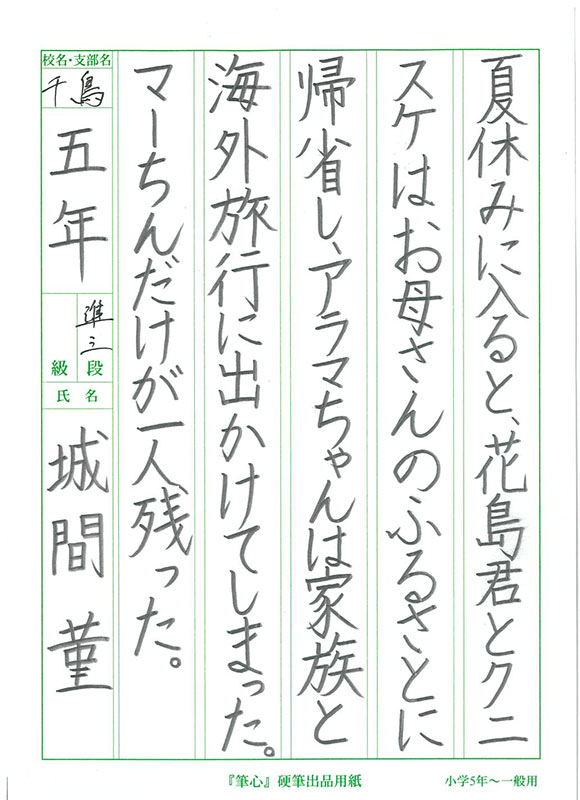 夏休みに入ると、花島君とクニ
スケはお母さんのふるさとに
帰省し、アラマちゃんは家族と
海外旅行に出かけてしまった。
マーちんだけが一人残った。
校名・支部名
千鳥
五年
準三
段
級
氏名
城間菫
『筆心』硬筆出品用紙
小学5年〜一般用